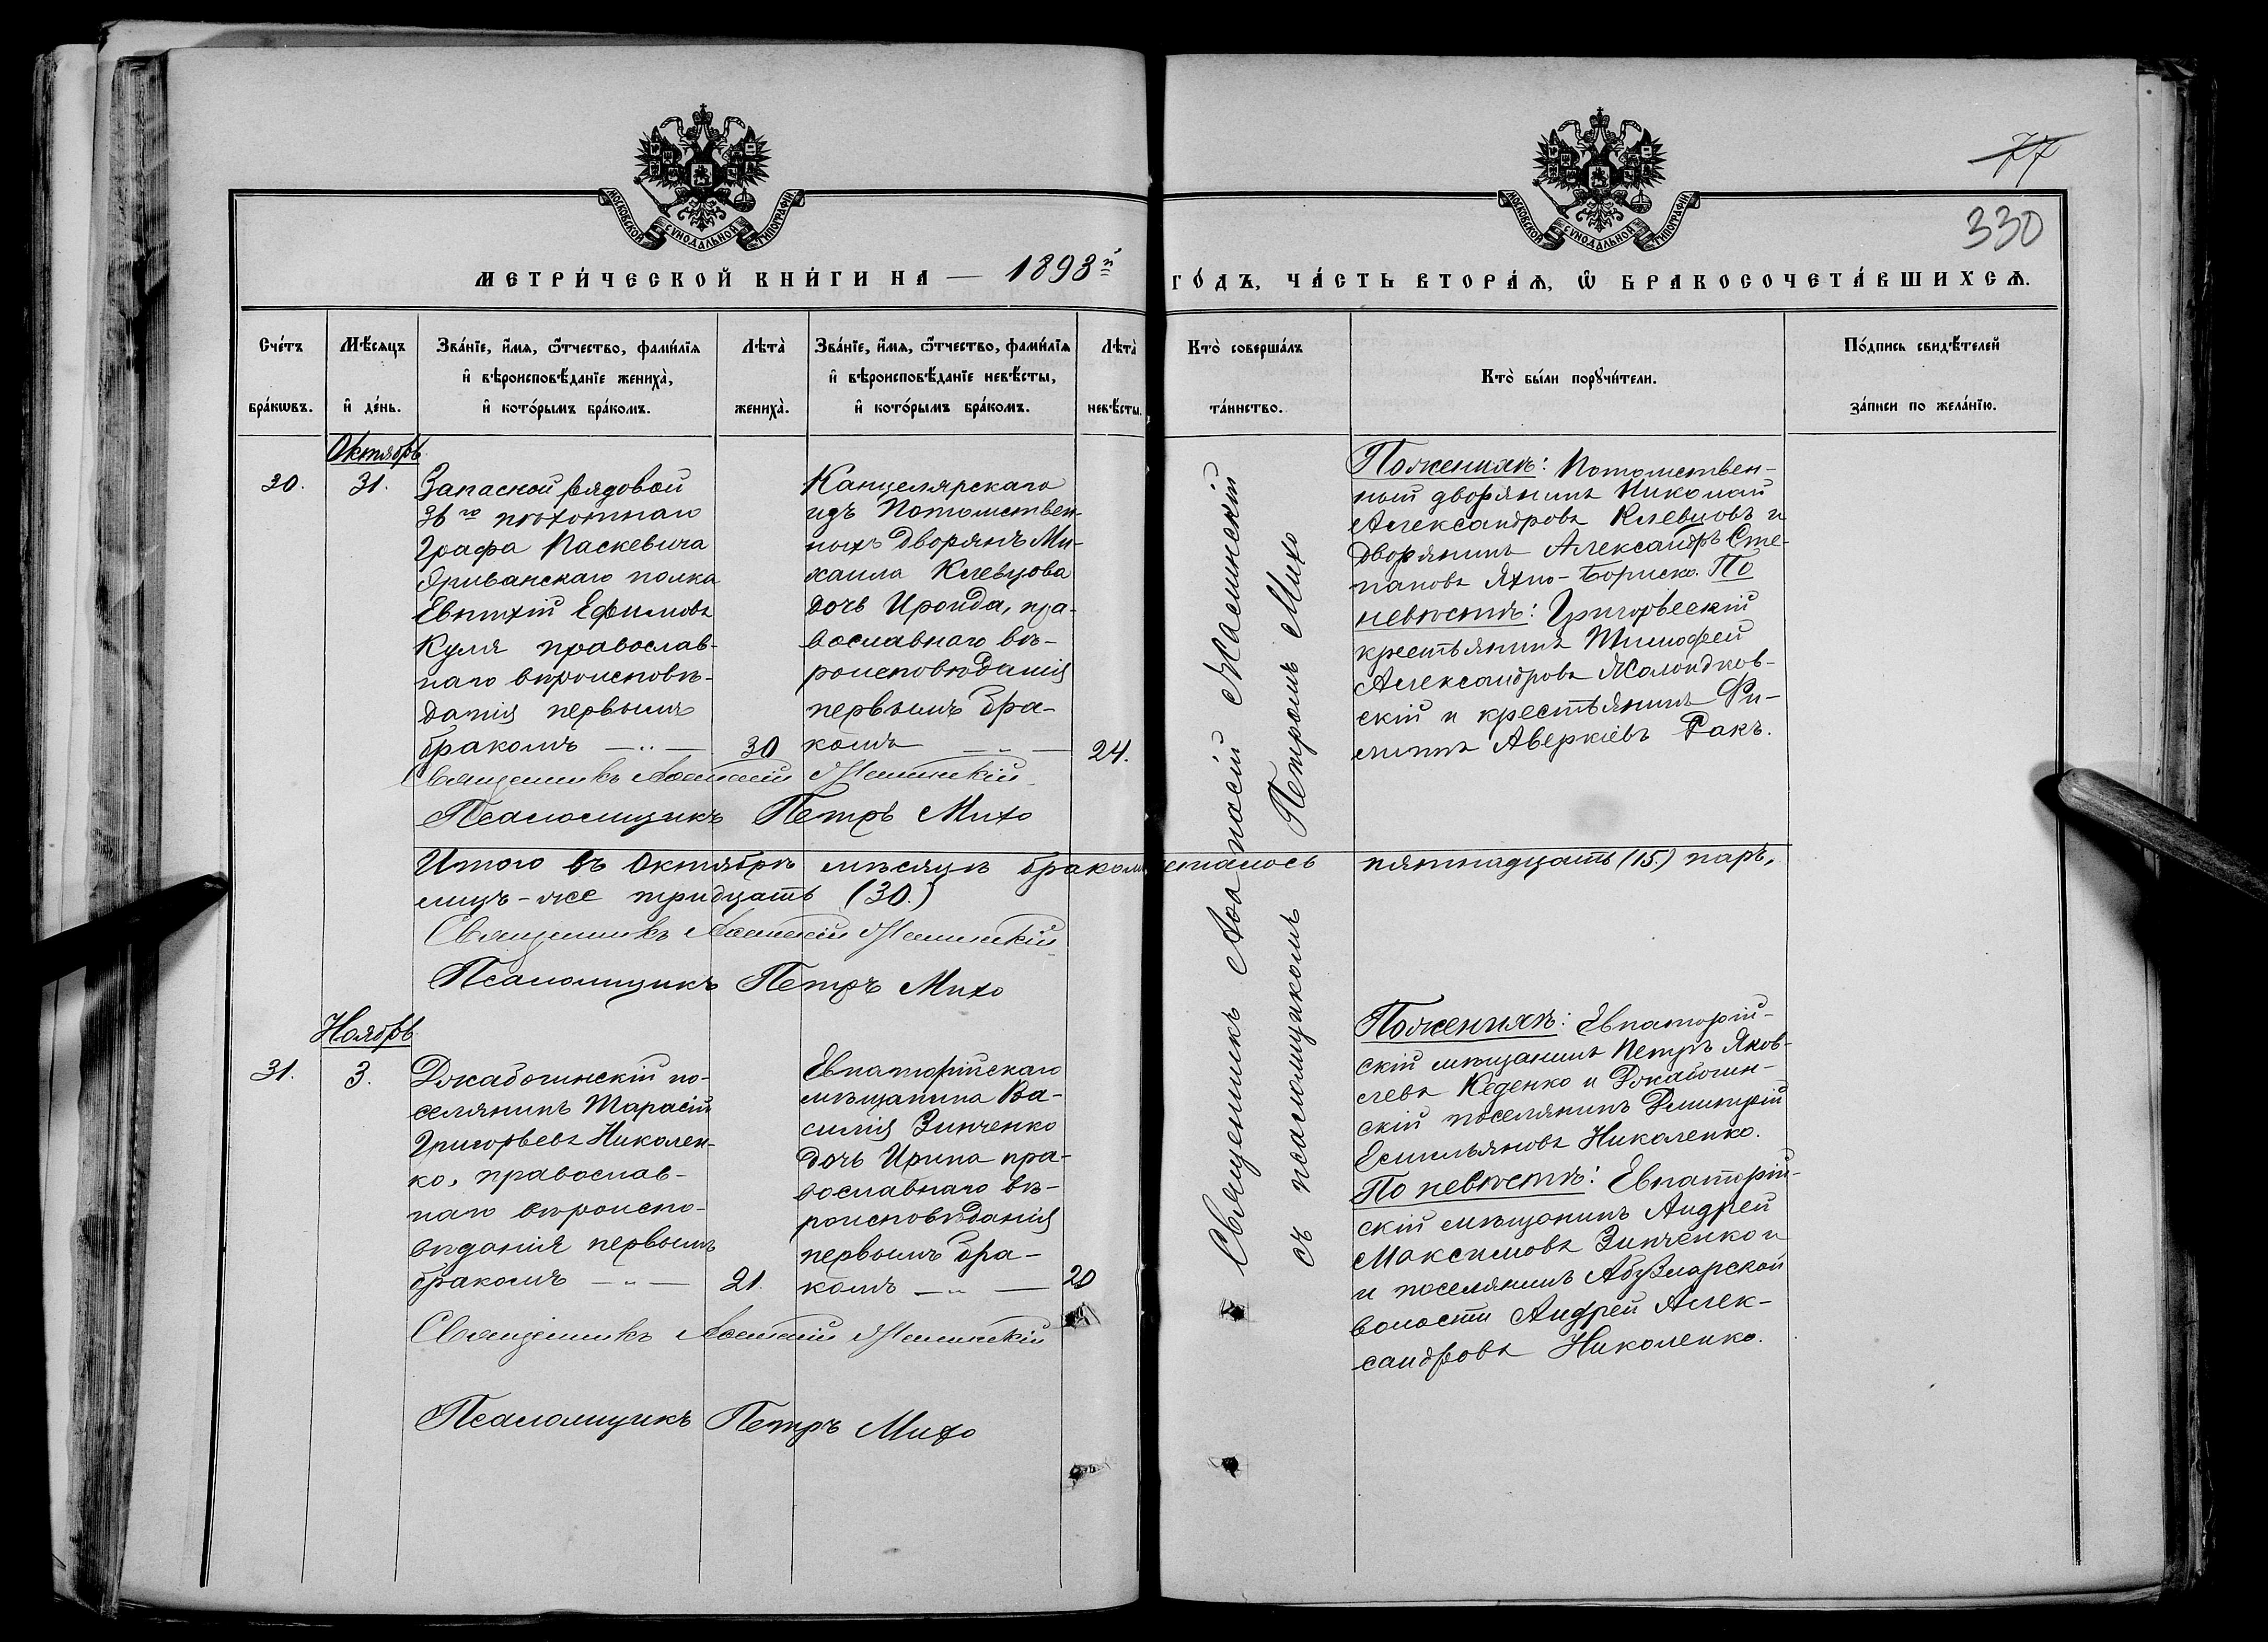 77
330
МОСКОВСКОЙ СѴНОДАЛЬНОЙ ТИПОГРАФІИ
МОСКОВСКОЙ СѴНОДАЛЬНОЙ ТИПОГРАФІИ
МЕТРИ́ЧЕСКОЙ КНИ́ГИ НА — 1893й ГО́ДЪ, ЧА́СТЬ ВТОРА́Ѧ, Ѽ БРАКОСОЧЕТА́ВШИХСѦ.
Сче́тъ
бра́кѡвъ.
Мѣ́сяцъ
и҆ де́нь.
Зва́нїе, и҆́мя, ѻ҆́тчество, фами́лїя
и҆ вѣроисповѣ́данїе жениха̀,
и҆ кото́рымъ бра́комъ.
Лѣта̀
жениха̀.
Зва́нїе, и҆́мя, ѻ҆́тчество, фами́лїя
и҆ вѣроисповѣ́данїе невѣ́сты,
и҆ кото́рымъ бра́комъ.
Лѣта̀
невѣ́сты.
Кто̀ соверша́лъ
та́инство.
Кто̀ бы́ли порꙋчи́тели.
По́дпись свидѣ́телей
за́писи по жела́нїю.
Октябрь
30.
31.
Запасной рядовой
36го пѣхотнаго
Графа Паскевича
Эриванскаго полка
Евтихій Ефимовъ
Куля православ-
наго вѣроисповѣ-
данія первымъ
бракомъ — „ —
30
Канцелярскаго
изъ Потомствен-
ныхъ Дворянъ Ми-
хаила Клевцова
дочь Ираида, пра-
вославнаго вѣ-
роисповѣданія
первымъ бра-
комъ — „ —
24.
Священникъ Аѳанасій
Псаломщикъ Петръ Михо
Поженихѣ: Потомствен-
ный дворянинъ Николай
Александровъ Клевцовъ и
дворянинъ Александръ Сте-
пановъ Яхно-Бориско. По
невѣстѣ: Григорьескій
крестьянинъ Тимофей
Александровъ
скій и крестьянинъ Фи-
липпъ Аверкіевъ Ракъ.
Священникъ Аѳанасій
съ псаломщикомъ Петромъ Михо
Итого въ Октябрѣ мѣсяцѣ бракосочеталось пятнадцать (15.) паръ,
лицъ-же тридцать (30.)
Священникъ Аѳанасій
Псаломщикъ Петръ Михо
Ноябрь
31.
3.
Джабочинскій по-
селянинъ Тарасій
Григорьевъ Николен-
ко, православ-
наго вѣроиспо-
вѣданія первымъ
бракомъ — „ —
21.
Евпаторійскаго
мѣщанина Ва-
силія Зинченко
дочь Ирина пра-
вославнаго вѣ-
роисповѣданія
первымъ бра-
комъ — „ —
20
Священникъ Аѳанасій
Псаломщикъ Петръ Михо
Поженихѣ: Евпаторій-
скій мѣщанинъ Петръ Яков-
левъ Кеденко и Джабочин-
скій поселянинъ Димитрій
Емильяновъ Николенко.
По невѣстѣ: Евпаторій-
скій мѣщанинъ Андрей
Максимовъ Зинченко и
и поселянинъ Абузларской
волости Андрей Алек-
сандровъ Николенко.